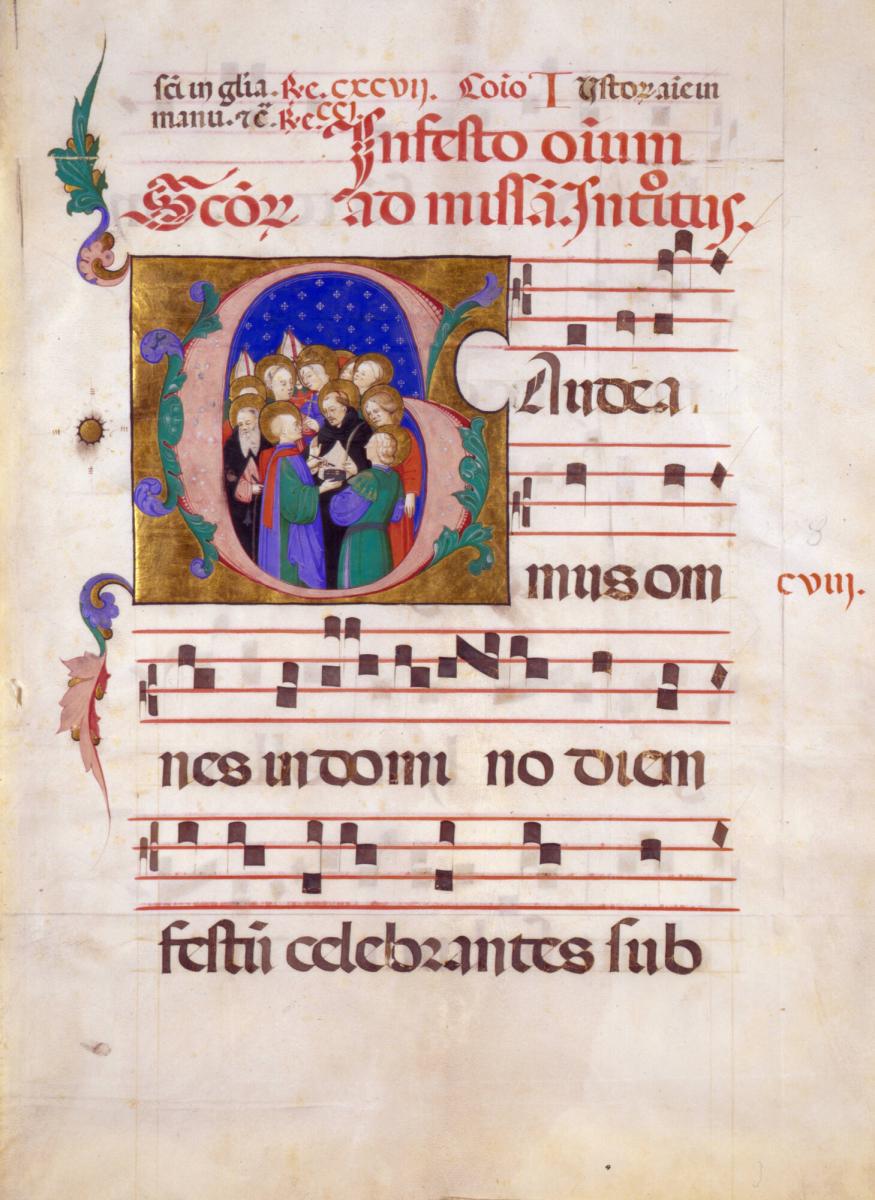 sc̄i in gl̄ia. R̄e. cxcvij. Coīo Iustor. aīe in
manu. ⁊c̄. R̄e. ccj.
In festo oīum
Sc̄or ad missā. Introitus.
Gaudea
mus om
cviij.
nes in domi no diem
festū celebrantes sub